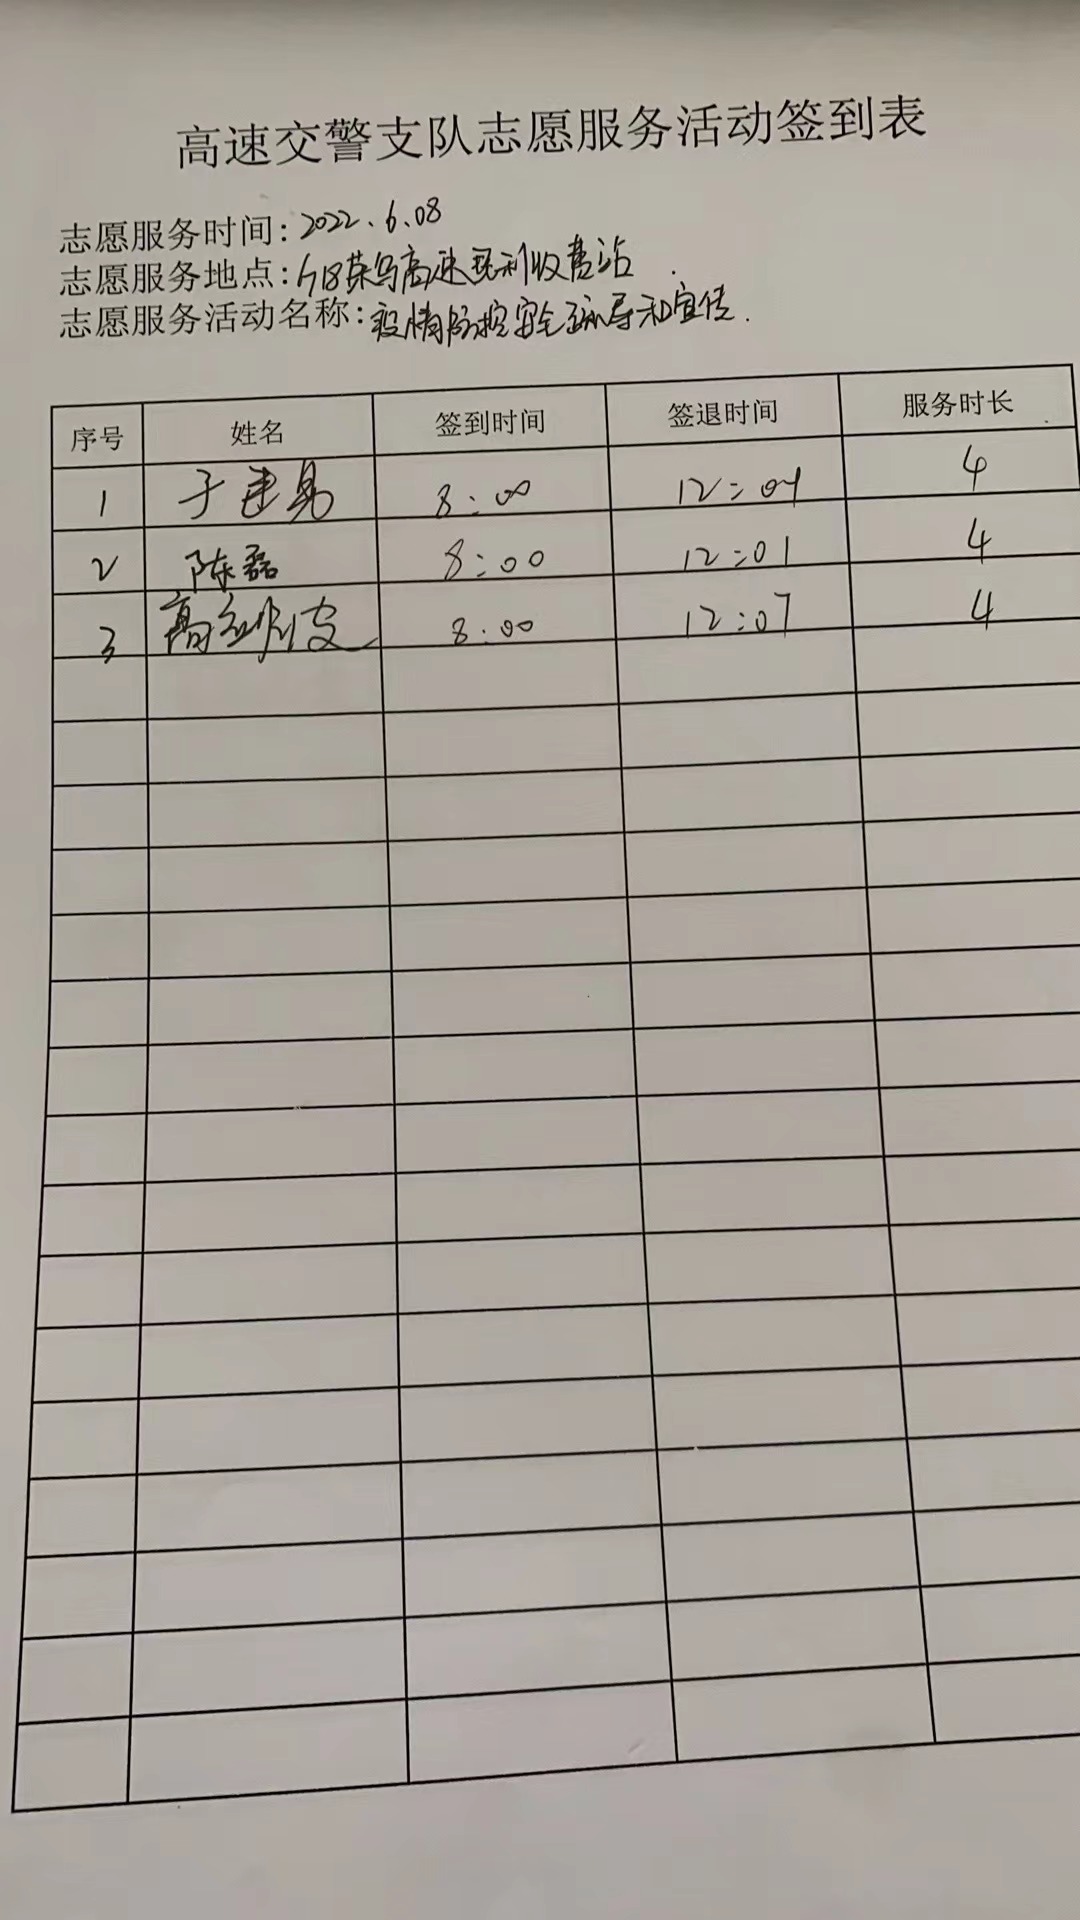 高速交警支队志愿服务活动签到表
志愿服务时间:2022.6.08
志愿服务地点:G18荣乌高速垦利收费站
志愿服务活动名称:疫情防控安全疏导和宣传.
序号 姓名 签到时间 签退时间 服务时长
1 于建 8:00 12:04 4
2 陈磊 8:00 12:01 4
3 高 8:00 12:07 4